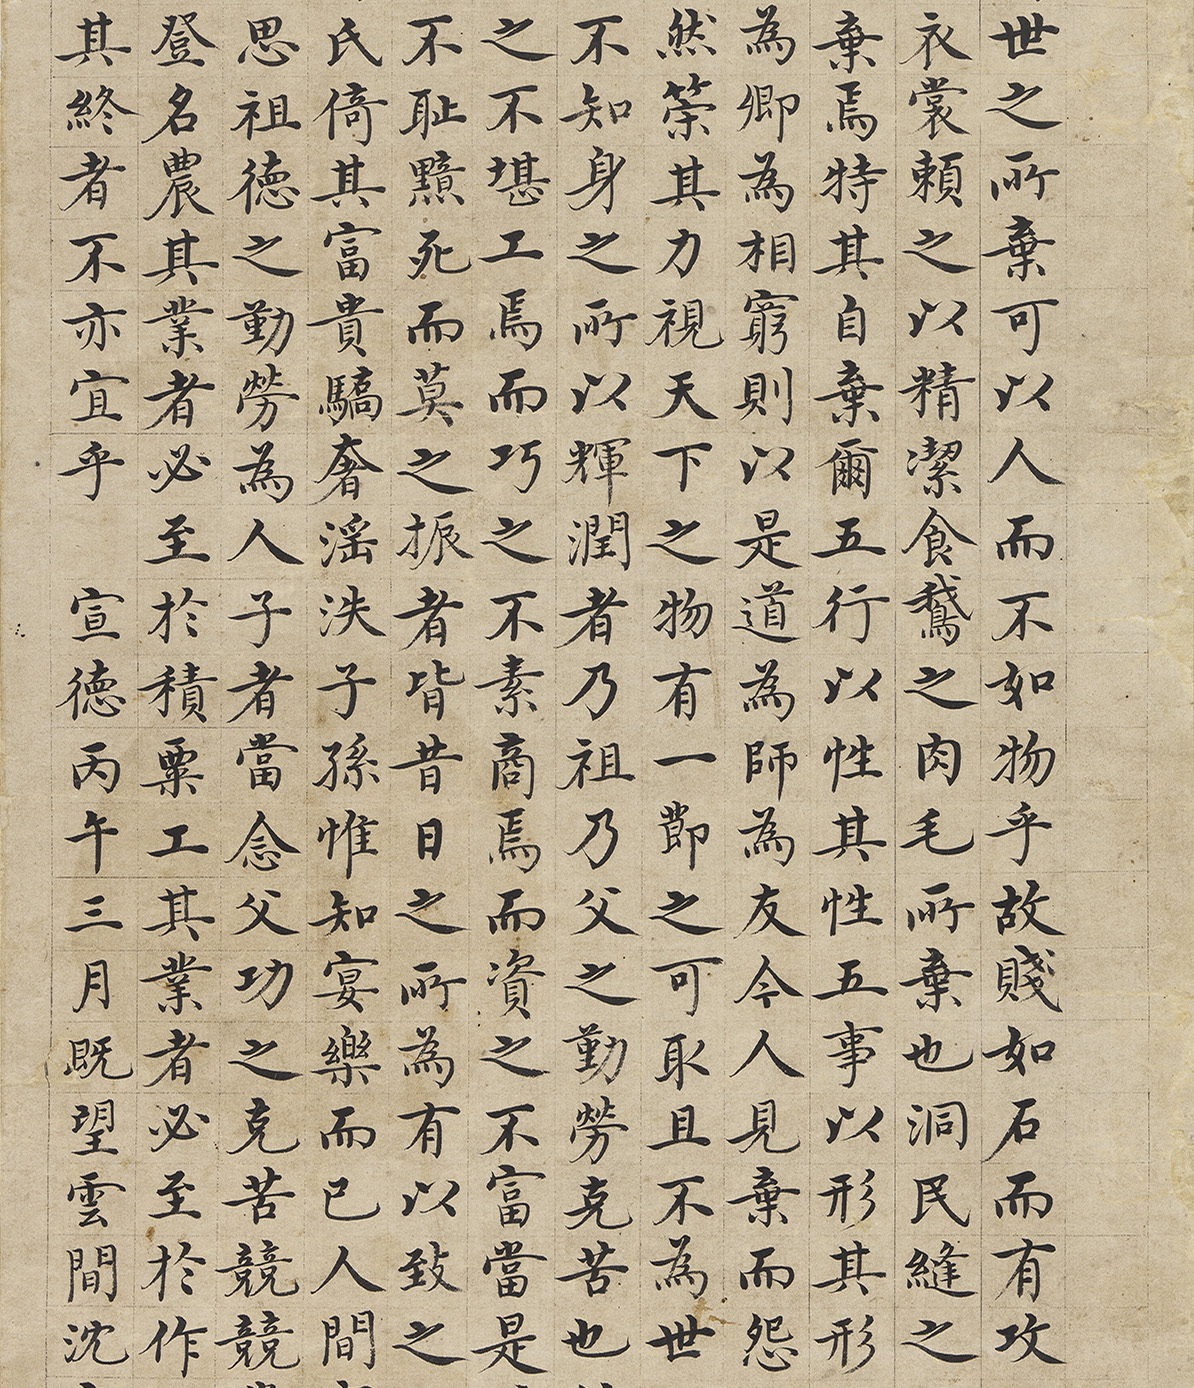 世之所棄可以人而不如物乎故賤如石而有攻
衣裳頼之以精潔食鵝之肉毛所棄也洞民縫之
棄焉特其自棄爾五行以性其性五事以形其形
為卿為相窮則以是道為師為友今人見棄而怨
然榮其力視天下之物有一節之可取且不為世
不知身之所以輝潤者乃祖乃父之勤勞克苦也
之不堪工焉而巧之不素商焉而資之不富當是
不耻黷死而莫之振者皆昔日之所為有以致之
氏倚其富貴驕奢滛泆子孫惟知宴樂而已人間
思祖德之勤勞為人子者當念父功之克苦競競
登名農其業者必至於積粟工其業者必至於作
其終者不亦宜乎 宣德丙午三月既望雲間沈